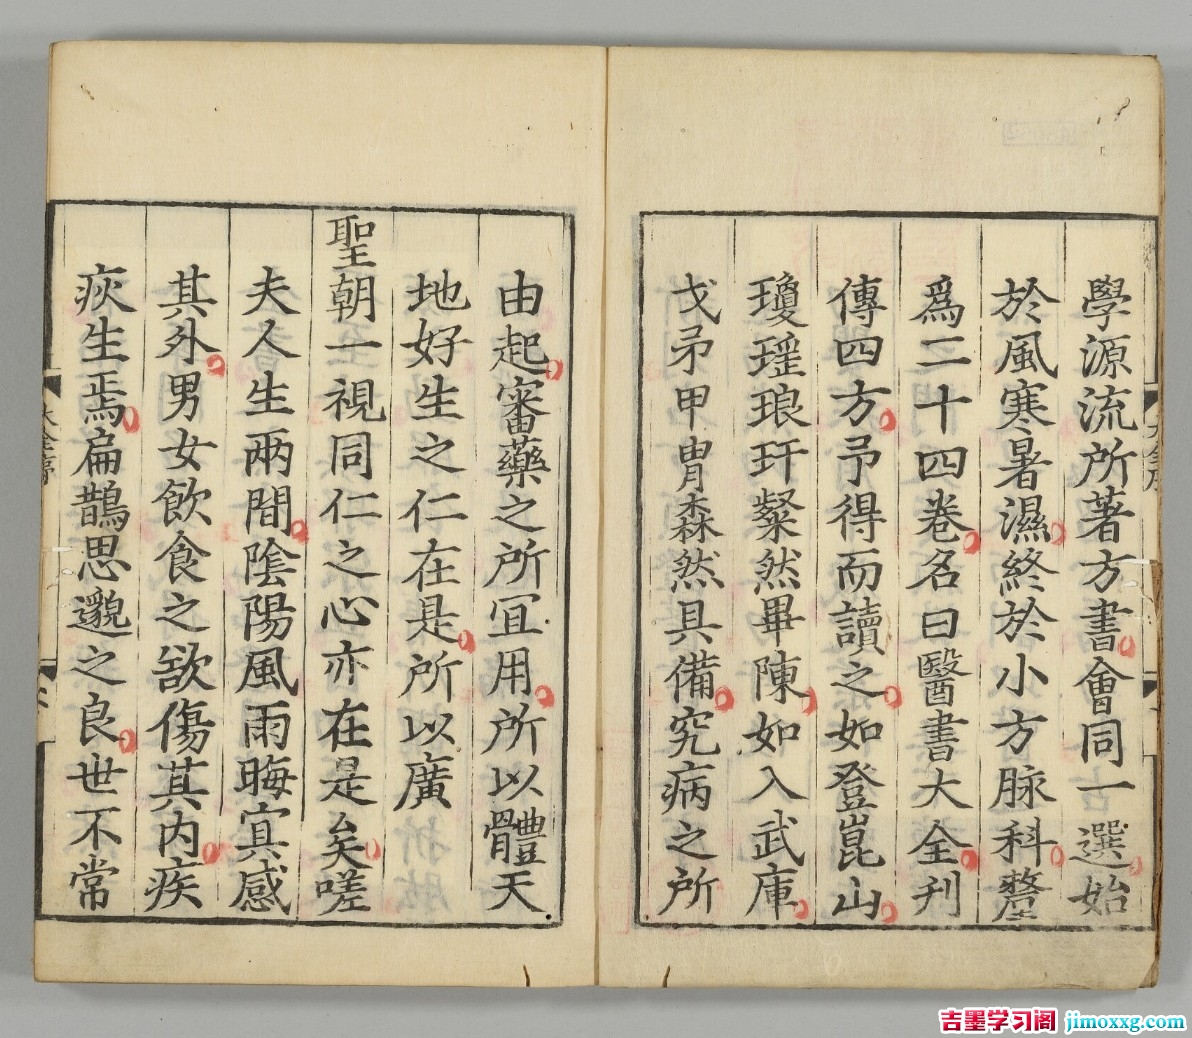 學源流所著方書會同一選始
於風寒暑濕終於小方脉科釐
為二十四卷名曰醫書大全刋
傳四方予得而讀之如登崑山
瓊瑶琅玕粲然畢陳如入武庫
戈矛甲冑森然具備究病之所
由起審藥之所宜用所以體天
地好生之仁在是所以廣
聖朝一視同仁之心亦在是矣嗟
夫人生兩間陰陽風雨晦寘感
其外男女飲食之欲傷其内疾
疢生焉扁鵲思邈之良世不常
大全序
吉墨学习阁 jimoxxg.com